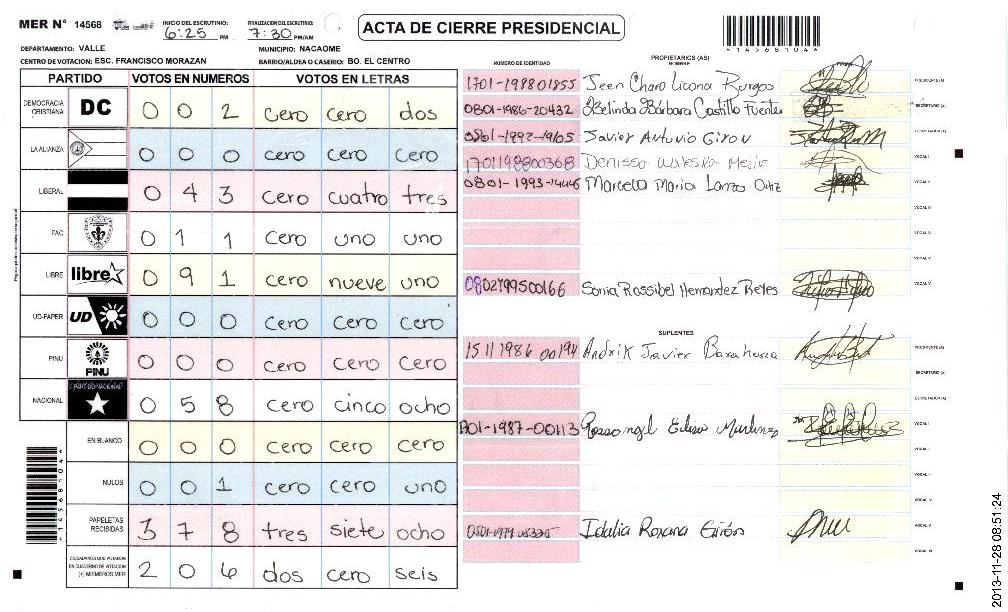 MER N° 14568
INICIO DEL ESCRUTINIO: 6:25 PM
FINALIZACION DEL ESCRUTINIO: 7:30 PM/AM
ACTA DE CIERRE PRESIDENCIAL
1 4 5 6 8 1 0 4
DEPARTAMENTO: VALLE
MUNICIPIO: NACAOME
CENTRO DE VOTACION: ESC. FRANCISCO MORAZAN
BARRIO/ALDEA O CASERIO: BO. EL CENTRO
PARTIDO VOTOS EN NUMEROS VOTOS EN LETRAS
DEMOCRACIA CRISTIANA DC 0 0 2 cero cero dos
LA ALIANZA 0 0 0 cero cero cero
LIBERAL 0 4 3 cero cuatro tres
PAC 0 1 1 cero uno uno
LIBRE libre 0 9 1 cero nueve uno
UD-FAPER UD 0 0 0 cero cero cero
PINU PINU 0 0 0 cero cero cero
NACIONAL PARTIDO NACIONAL 0 5 8 cero cinco ocho
EN BLANCO 0 0 0 cero cero cero
NULOS 0 0 1 cero cero uno
PAPELETAS RECIBIDAS 3 7 8 tres siete ocho
CIUDADANOS QUE VOTARON EN CUADERNO DE VOTACION (+) MIEMBROS MER 2 0 6 dos cero seis
1 4 5 6 8 1 0 4
NUMERO DE IDENTIDAD
PROPIETARIOS (AS)
NOMBRE
1701-198801855 Licona Burgos PRESIDENTE(A)
0801-1986-20432 Belinda Bárbara Castillo Fuentes SECRETARIO (A)
Javier Antonio Giron
1701198800368 Denissa Waleska VOCAL I
0801-1993- Marcela Maria VOCAL II
VOCAL III
VOCAL IV
Sonia Rossibel Hernandez Reyes VOCAL V
SUPLENTES
15 11 1986 00194 Andrik Javier Barahona PRESIDENTE(A)
SECRETARIO (A)
-1987-00113 Martinez VOCAL I
VOCAL V
Idalia Roxana
2013-11-28 08:51:24